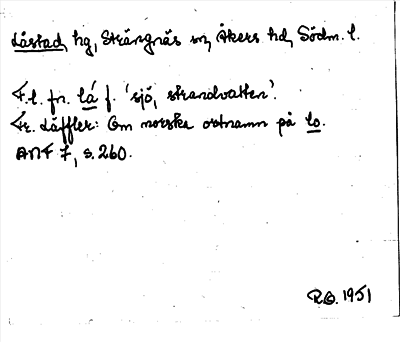 Låstad, hg, Strängnäs sn, Åkers hd, Södm. l.
F.l. fn. lá f. 'sjö, strandvatten'.
Fr. Läffler: Om norska ortnamn på lo.
ANF 7, s. 260.
R.O. 1951